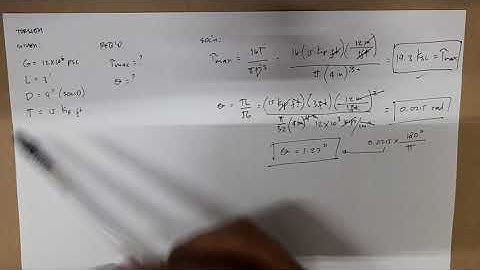 TORSION
GIVEN:
G = 12x10⁶ psi
L = 3'
D = 4" (SOLID)
T = 15 kip ft
REQ'D
τmax = ?
θ = ?
SOL'N:
τmax = 16T / πD³ = 16(15 kip ft)(12in / ft) / π(4in)³ = 14.3 ksi = τmax
θ = TL / JG = (15 kip ft)(3ft)(12in / ft)² / π/32 (4in)⁴ 12x10³ kip/in² = 0.0215 rad
θ = 1.23° 0.0215 x 180° / π